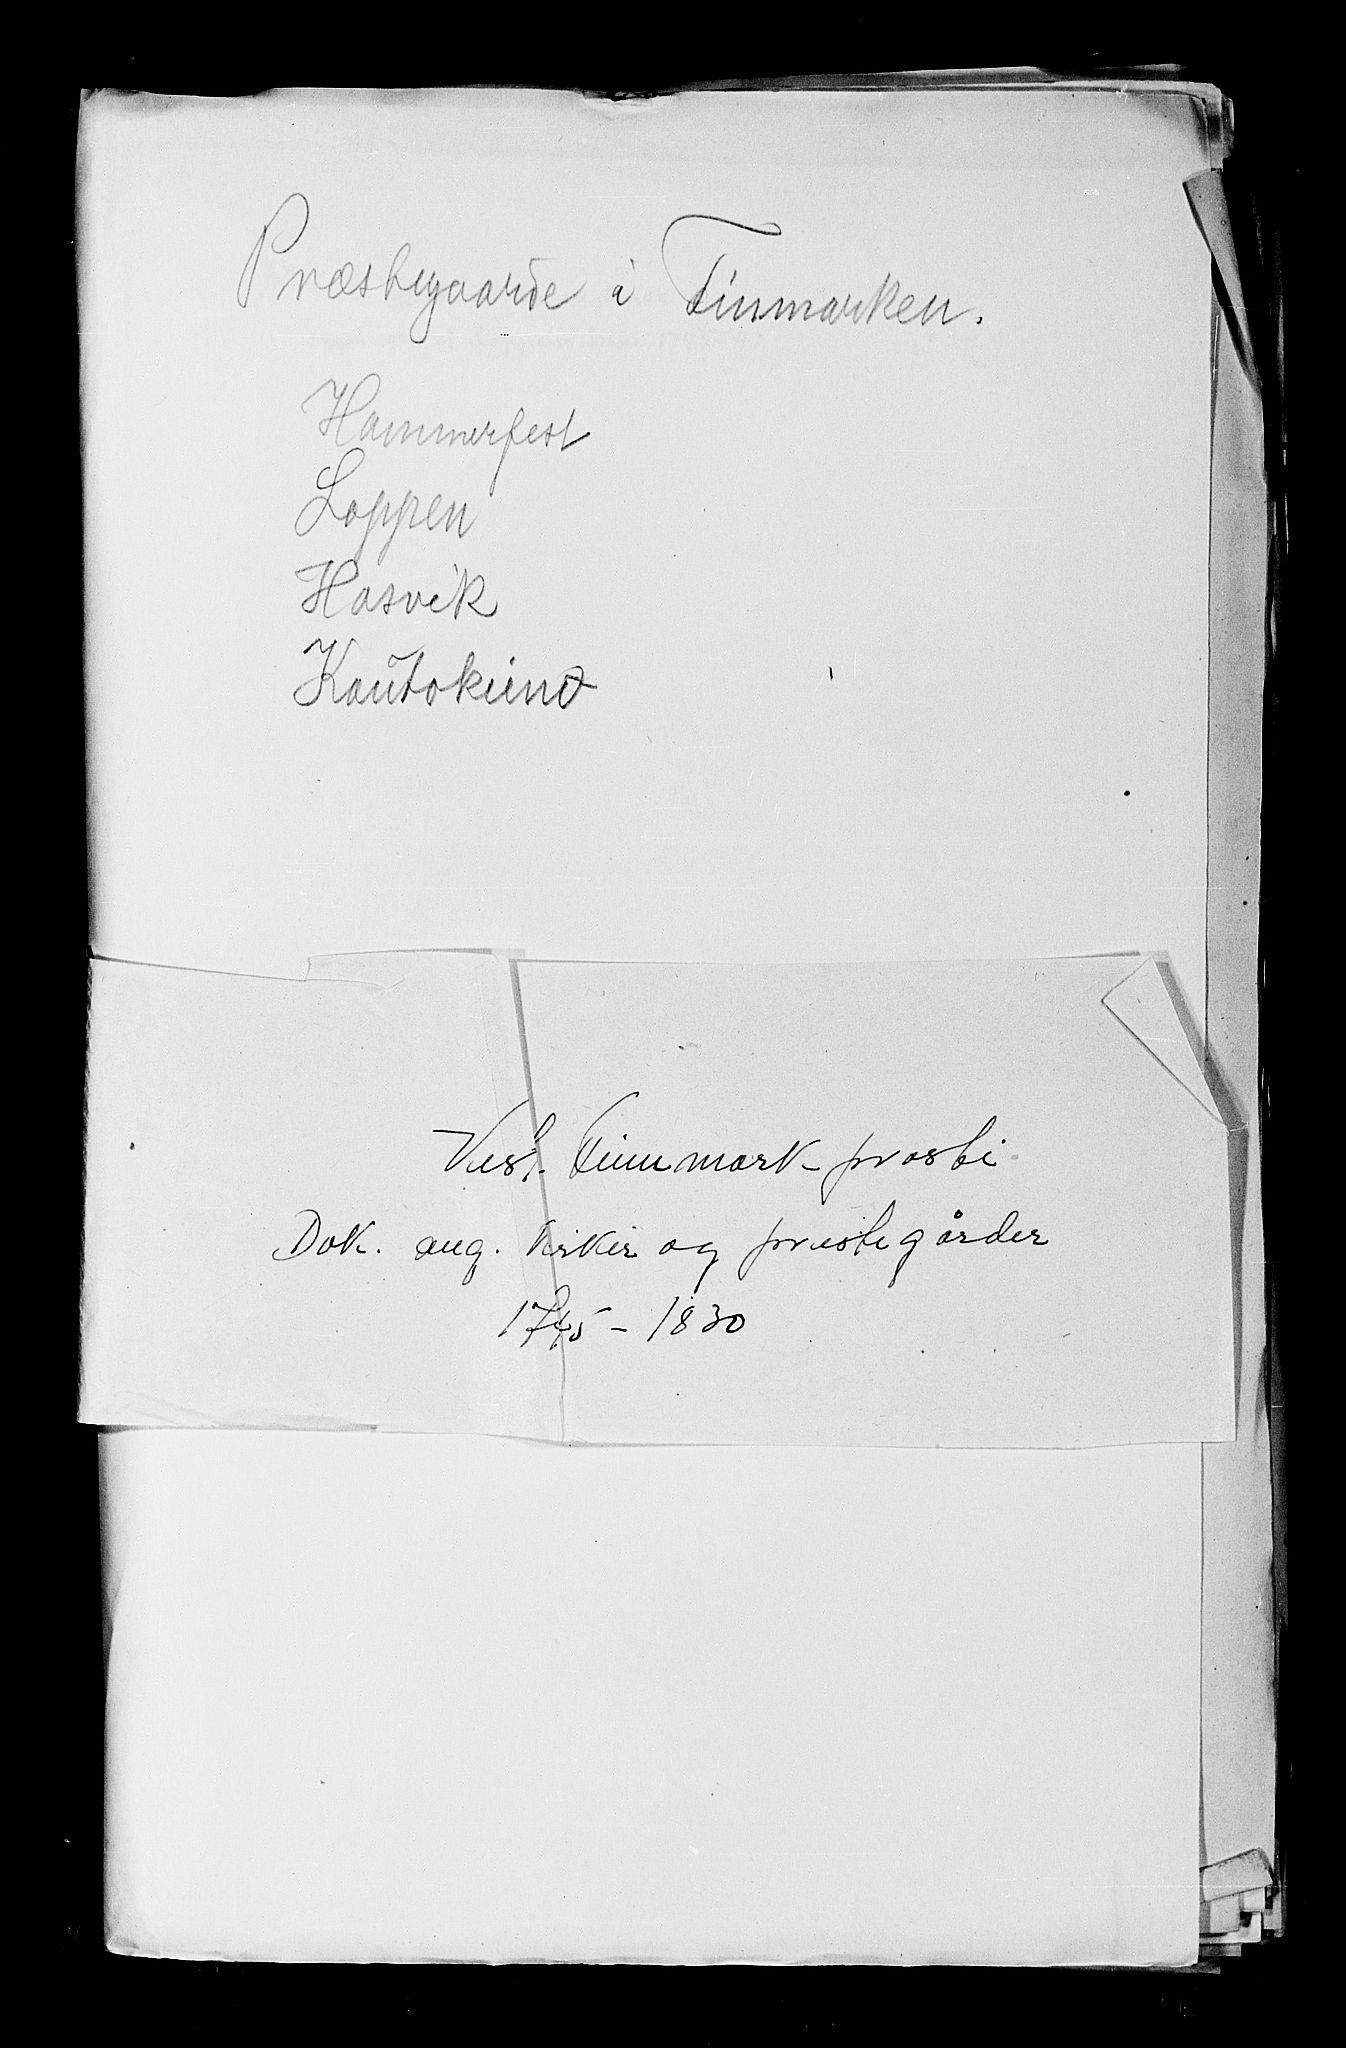 Præstegaarde i Finmarken.
Hammerfest
Loppen
Hasvik
Kautokeino
Vest-Finnmark prosti
Dok. ang. kirker og prestegårder
1745-1830